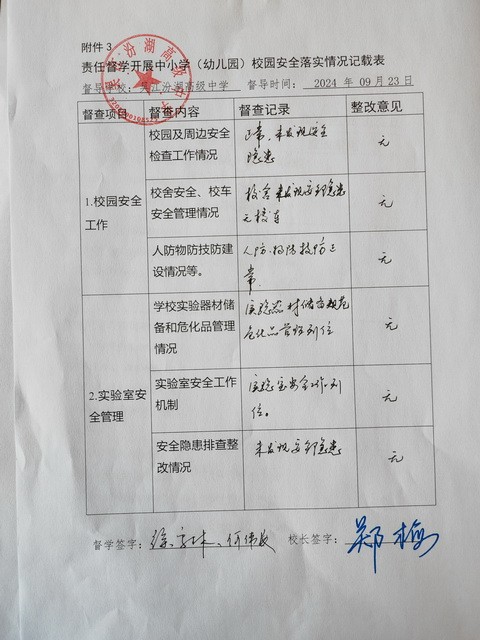 附件 3
责任督学开展中小学（幼儿园）校园安全落实情况记载表
江汾湖高级中学 督导时间： 2024 年 09 月 23 日
督查项目 督查内容 督查记录 整改意见
1.校园安全
工作
校园及周边安全
检查工作情况
正常，未发现安全
隐患
无
校舍安全、校车
安全管理情况
校舍未发现安全隐患
无校车
无
人防物防技防建
设情况等。
人防、物防技防正
常
无
2.实验室安
全管理
学校实验器材储
备和危化品管理
情况
实验器材储备规范
危化品管理到位
无
实验室安全工作
机制
实验室安全工作到
位。
无
安全隐患排查整
改情况
未发现安全隐患
无
督学签字： 校长签字： 郑梅